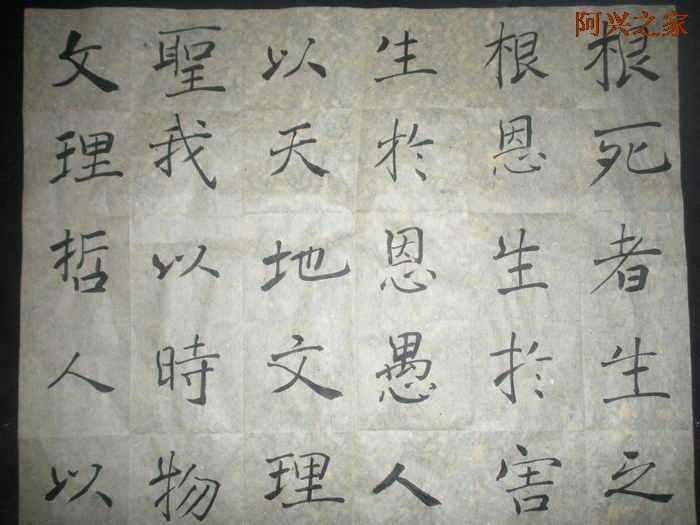 阿兴之家
根死者生之
根恩生於害
生於恩愚人
以天地文理
聖我以時物
文理哲人以